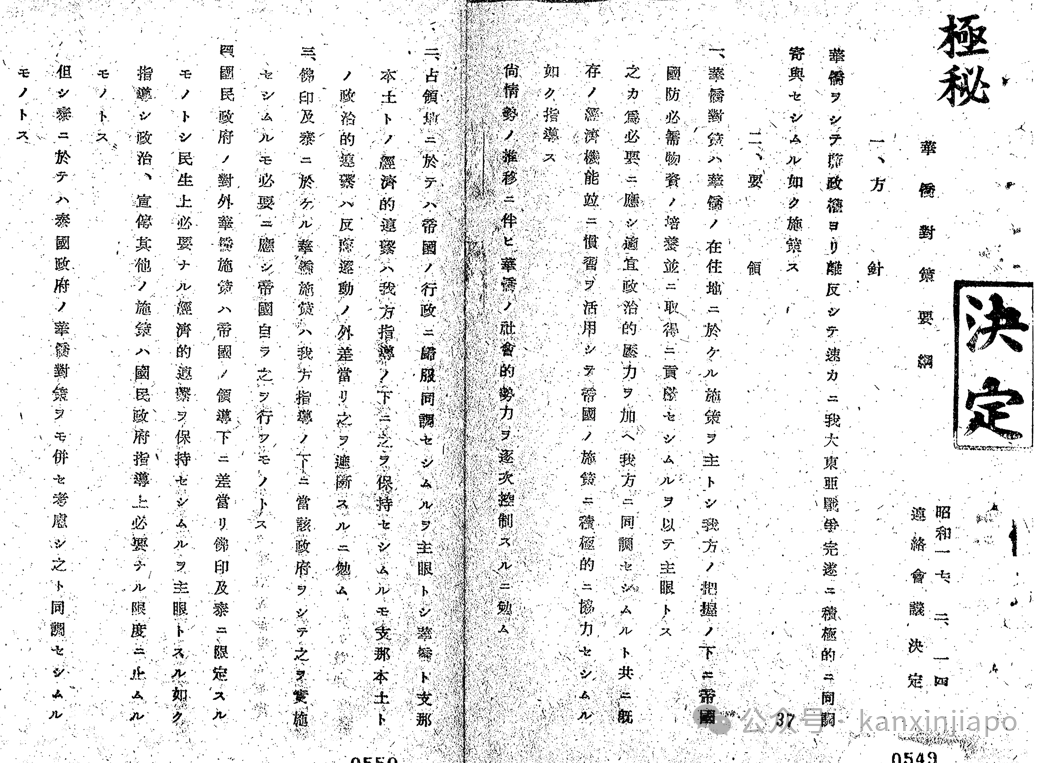 極秘
決定
華僑對策要綱
昭和一七、二、一四
連絡會議決定
一、方針
華僑ヲシテ蔣政權ヨリ離反シテ速カニ我大東亞戰爭完遂ニ積極的ニ同調
寄與セシムル如ク施策ス
二、要領
一、華僑對策ハ華僑ノ在住地ニ於ケル施策ヲ主トシ我方ノ把握ノ下ニ帝國
國防必需物資ノ培養並ニ取得ニ貢獻セシムルヲ以テ主眼トス
之カ爲必要ニ應シ適宜政治的壓力ヲ加ヘ我方ニ同調セシムルト共ニ既
存ノ經濟機能竝ニ慣習ヲ活用シテ帝國ノ施策ニ積極的ニ協力セシムル
如ク指導ス
尙情勢ノ推移ニ伴ヒ華僑ノ社會的勢力ヲ逐次控制スルニ勉ム
37
0549
二、占領地ニ於テハ帝國ノ行政ニ歸服同調セシムルヲ主眼トシ華僑ト支那
本土トノ經濟的連繫ハ我方指導ノ下ニ之ヲ保持セシムルモ支那本土ト
ノ政治的連繫ハ反蔣運動ノ外差當リ之ヲ遮斷スルニ勉ム
三、佛印及泰ニ於ケル華僑施策ハ我方指導ノ下ニ當該政府ヲシテ之ヲ實施
セシムルモ必要ニ應シ帝國自ラ之ヲ行フモノトス
四、國民政府ノ對外華僑施策ハ帝國ノ領導下ニ差當リ佛印及泰ニ限定スル
モノトシ民生上必要ナル經濟的連繫ヲ保持セシムルヲ主眼トスル如ク
指導シ政治、宣傳其他ノ施策ハ國民政府指導上必要ナル限度ニ止ムル
モノトス
但シ泰ニ於テハ泰國政府ノ華僑對策ヲモ併セ考慮シ之ト同調セシムル
モノトス
0550
公众号 · kanxinjiapo